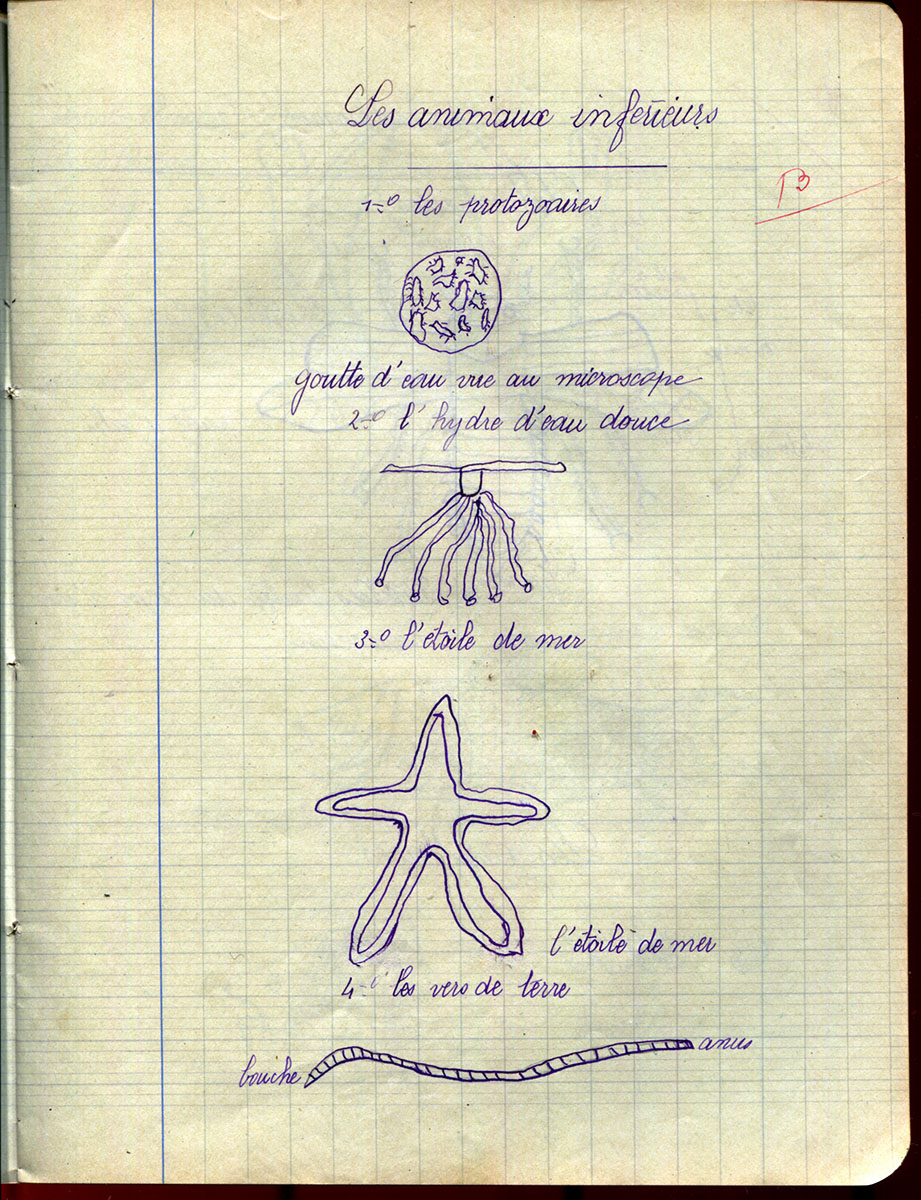 Les animaux inférieurs
B
1-º les protozoaires
goutte d'eau vue au microscope
2-º l'hydre d'eau douce
3-º l'étoile de mer
l'étoile de mer
4-º les vers de terre
anus
bouche